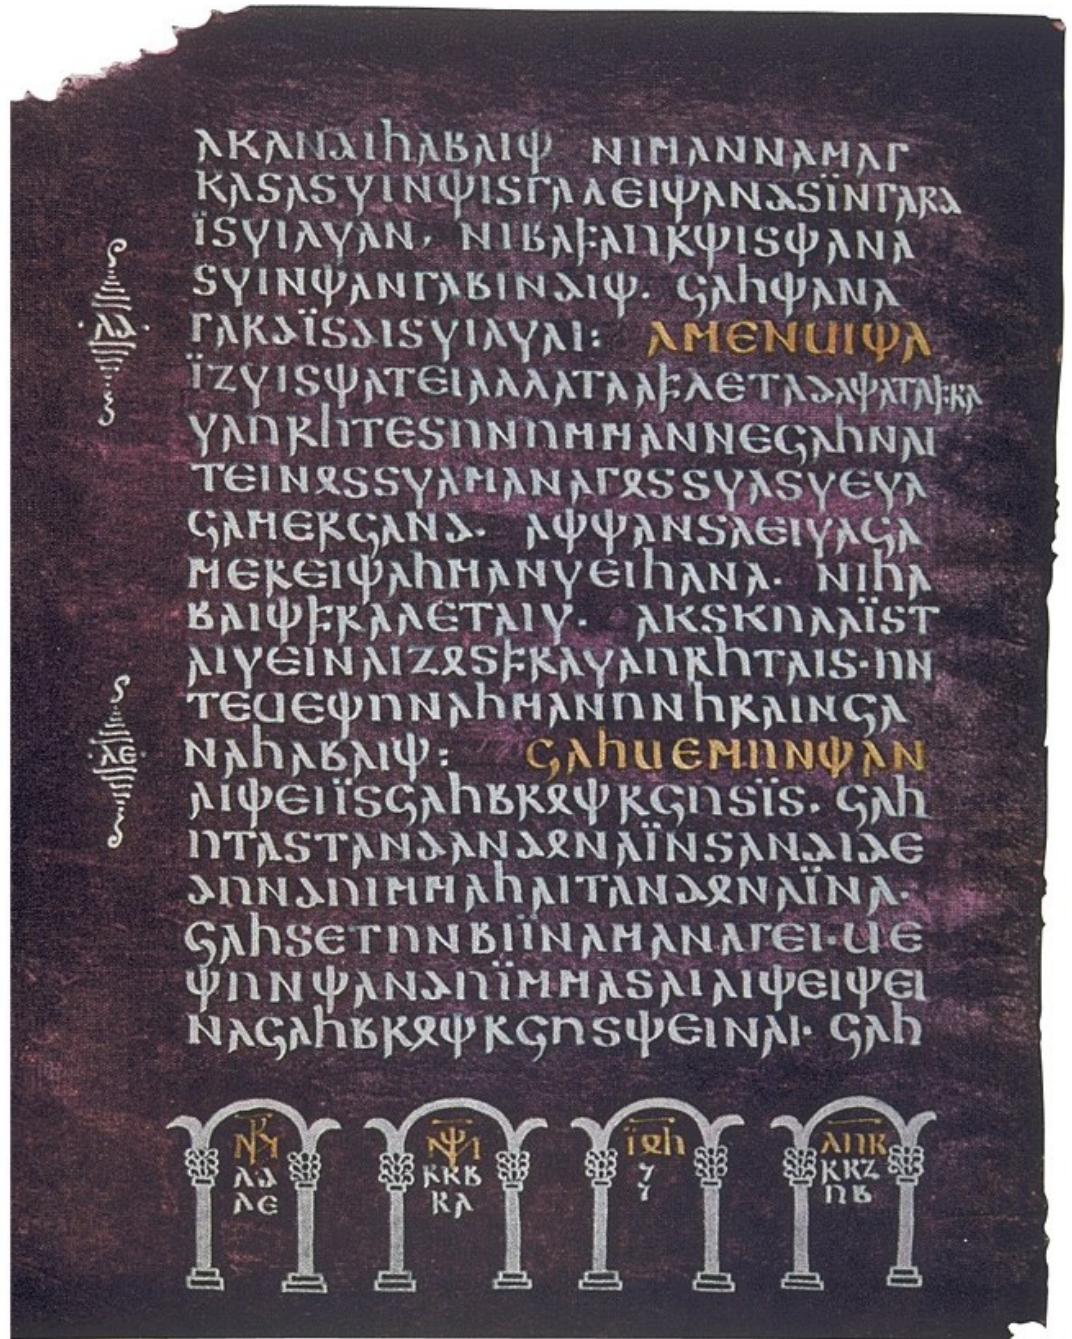 𐌰𐌺𐌰𐌽𐌳𐌹𐌷𐌰𐌱𐌰𐌹𐌸 𐌽𐌹𐌼𐌰𐌽𐌽𐌰𐌼𐌰𐌲
𐌺𐌰𐍃𐌰𐍃𐍅𐌹𐌽𐌸𐌹𐍃𐌲𐌰𐌻𐌴𐌹𐌸𐌰𐌽𐌳𐍃𐌹̈𐌽𐌲𐌰𐍂𐌳
𐌹̈𐍃𐍅𐌹𐌻𐍅𐌰𐌽· 𐌽𐌹𐌱𐌰𐍆𐌰𐌿𐍂𐌸𐌹𐍃𐌸𐌰𐌽𐌰
𐍃𐍅𐌹𐌽𐌸𐌰𐌽𐌲𐌰𐌱𐌹𐌽𐌳𐌹𐌸· 𐌾𐌰𐌷𐌸𐌰𐌽𐌰
𐌲𐌰𐍂𐌳𐌹̈𐍃𐌳𐌹𐍃𐍅𐌹𐌻𐍅𐌰𐌹: 𐌰𐌼𐌴𐌽𐌵𐌹𐌸𐌰
𐌹̈𐌶𐍅𐌹𐍃𐌸𐌰𐍄𐌴𐌹𐌰𐌻𐌻𐌰𐍄𐌰𐌰𐍆𐌻𐌴𐍄𐌰𐌳𐌰𐌸𐌰𐍄𐌰𐍆𐍂𐌰
𐍅𐌰𐌿𐍂𐌷𐍄𐌴𐍃𐌿𐌽𐌿𐌼𐌼𐌰𐌽𐌽𐌴𐌾𐌰𐌷𐌽𐌰𐌹
𐍄𐌴𐌹𐌽𐍉𐍃𐍃𐍅𐌰𐌼𐌰𐌽𐌰𐌲𐍉𐍃𐍃𐍅𐌰𐍃𐍅𐌴𐍅𐌰
𐌾𐌰𐌼𐌴𐍂𐌾𐌰𐌽𐌳· 𐌰𐌸𐌸𐌰𐌽𐍃𐌰𐌴𐌹𐍅𐌰𐌾𐌰
𐌼𐌴𐍂𐌴𐌹𐌸𐌰𐌷𐌼𐌰𐌽𐍅𐌴𐌹𐌷𐌰𐌽𐌰· 𐌽𐌹𐌷𐌰
𐌱𐌰𐌹𐌸𐍆𐍂𐌰𐌻𐌴𐍄𐌰𐌹𐍅· 𐌰𐌺𐍃𐌺𐌿𐌻𐌰𐌹̈𐍃𐍄
𐌰𐌹𐍅𐌴𐌹𐌽𐌰𐌹𐌶𐍉𐍃𐍆𐍂𐌰𐍅𐌰𐌿𐍂𐌷𐍄𐌰𐌹𐍃·𐌿𐌽
𐍄𐌴𐌵𐌴𐌸𐌿𐌽𐌰𐌷𐌼𐌰𐌽𐌿𐌽𐌷𐍂𐌰𐌹𐌽𐌾𐌰
𐌽𐌰𐌷𐌰𐌱𐌰𐌹𐌸: 𐌾𐌰𐌷𐌵𐌴𐌼𐌿𐌽𐌸𐌰𐌽
𐌰𐌹𐌸𐌴𐌹𐌹̈𐍃𐌾𐌰𐌷𐌱𐍂𐍉𐌸𐍂𐌾𐌿𐍃𐌹̈𐍃· 𐌾𐌰𐌷
𐌿𐍄𐌰𐍃𐍄𐌰𐌽𐌳𐌰𐌽𐌳𐍉𐌽𐌰𐌹̈𐌽𐍃𐌰𐌽𐌳𐌹𐌳𐌴
𐌳𐌿𐌽𐌳𐌿𐌹𐌼𐌼𐌰𐌷𐌰𐌹𐍄𐌰𐌽𐌳𐍉𐌽𐌰𐌹̈𐌽𐌰·
𐌾𐌰𐌷𐍃𐌴𐍄𐌿𐌽𐌱𐌹𐌹̈𐌽𐌰𐌼𐌰𐌽𐌰𐌲𐌴𐌹·𐌵𐌴
𐌸𐌿𐌽𐌸𐌰𐌽𐌳𐌿𐌹̈𐌼𐌼𐌰𐍃𐌰𐌹𐌰𐌹𐌸𐌴𐌹𐌸𐌴𐌹
𐌽𐌰𐌾𐌰𐌷𐌱𐍂𐍉𐌸𐍂𐌾𐌿𐍃𐌸𐌴𐌹𐌽𐌰𐌹· 𐌾𐌰𐌷
𐌻𐌳
𐌻𐌴
𐍂𐌺𐌱
𐌹̈𐍉𐌷
𐌻𐌿𐌺
𐍂𐌺𐌶